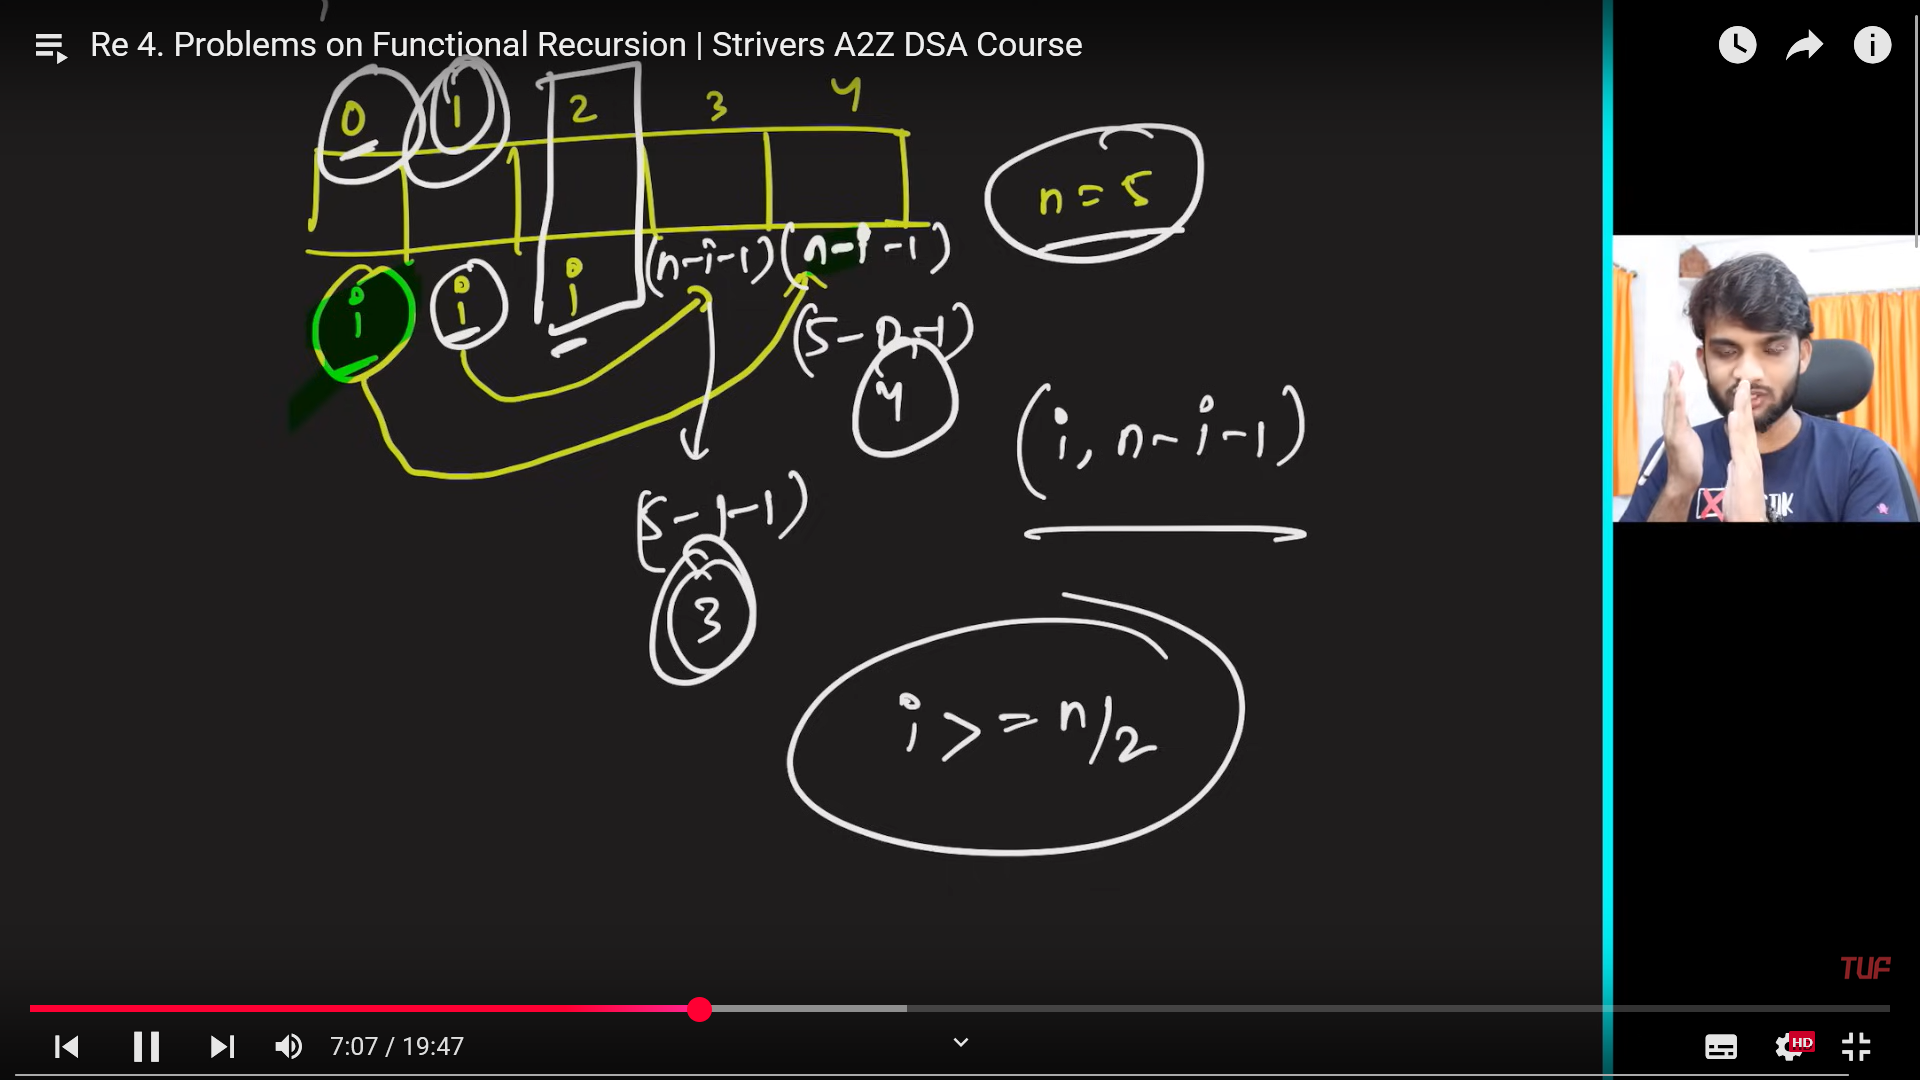 Re 4. Problems on Functional Recursion | Strivers A2Z DSA Course
0 1 2 3 4
n = 5
i i i (n-i-1) (n-i-1)
(5-0-1)
4
(i, n-i-1)
(5-1-1)
3
i >= n/2
TUF
7:07 / 19:47
HD